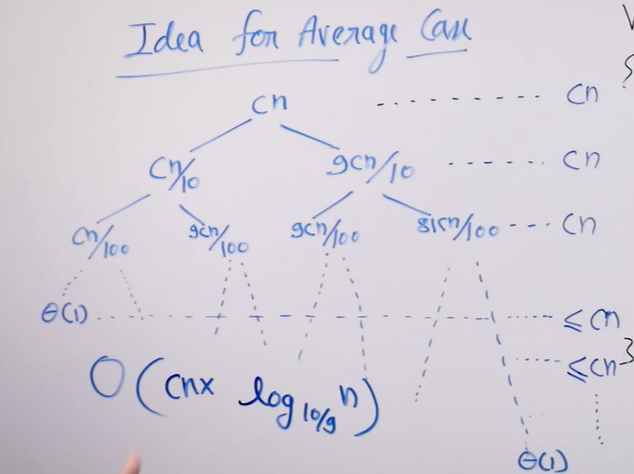 Idea for Average Case
cn ------- cn
cn/10 9cn/10 ------ cn
cn/100 9cn/100 9cn/100 81cn/100 ---- cn
θ(1) ≤ cn
≤ cn
O(cn x log10/9 n)
θ(1)